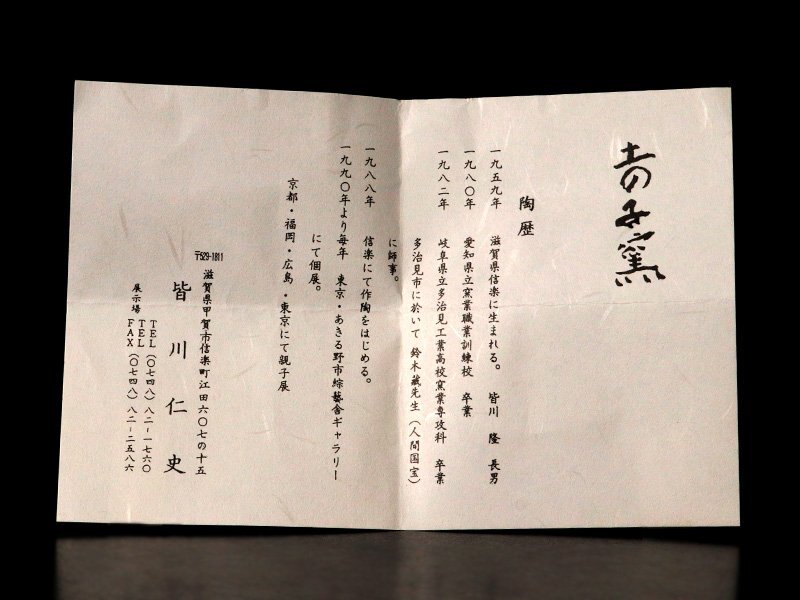 土の子窯
陶歴
一九五九年　滋賀県信楽に生まれる。　皆川　隆　長男
一九八〇年　愛知県立窯業職業訓練校　卒業
一九八二年　岐阜県立多治見工業高校窯業専攻科　卒業
多治見市に於いて　鈴木藏先生（人間国宝）
に師事。
一九八八年　信楽にて作陶をはじめる。
一九九〇年より毎年　東京・あきる野市綜藝舎ギャラリー
にて個展。
京都・福岡・広島・東京にて親子展
〒529-1811
滋賀県甲賀市信楽町江田六〇七の十五
皆川仁史
TEL（〇七四八）八二－一七六〇
展示場　TEL
FAX（〇七四八）八二－二五八六